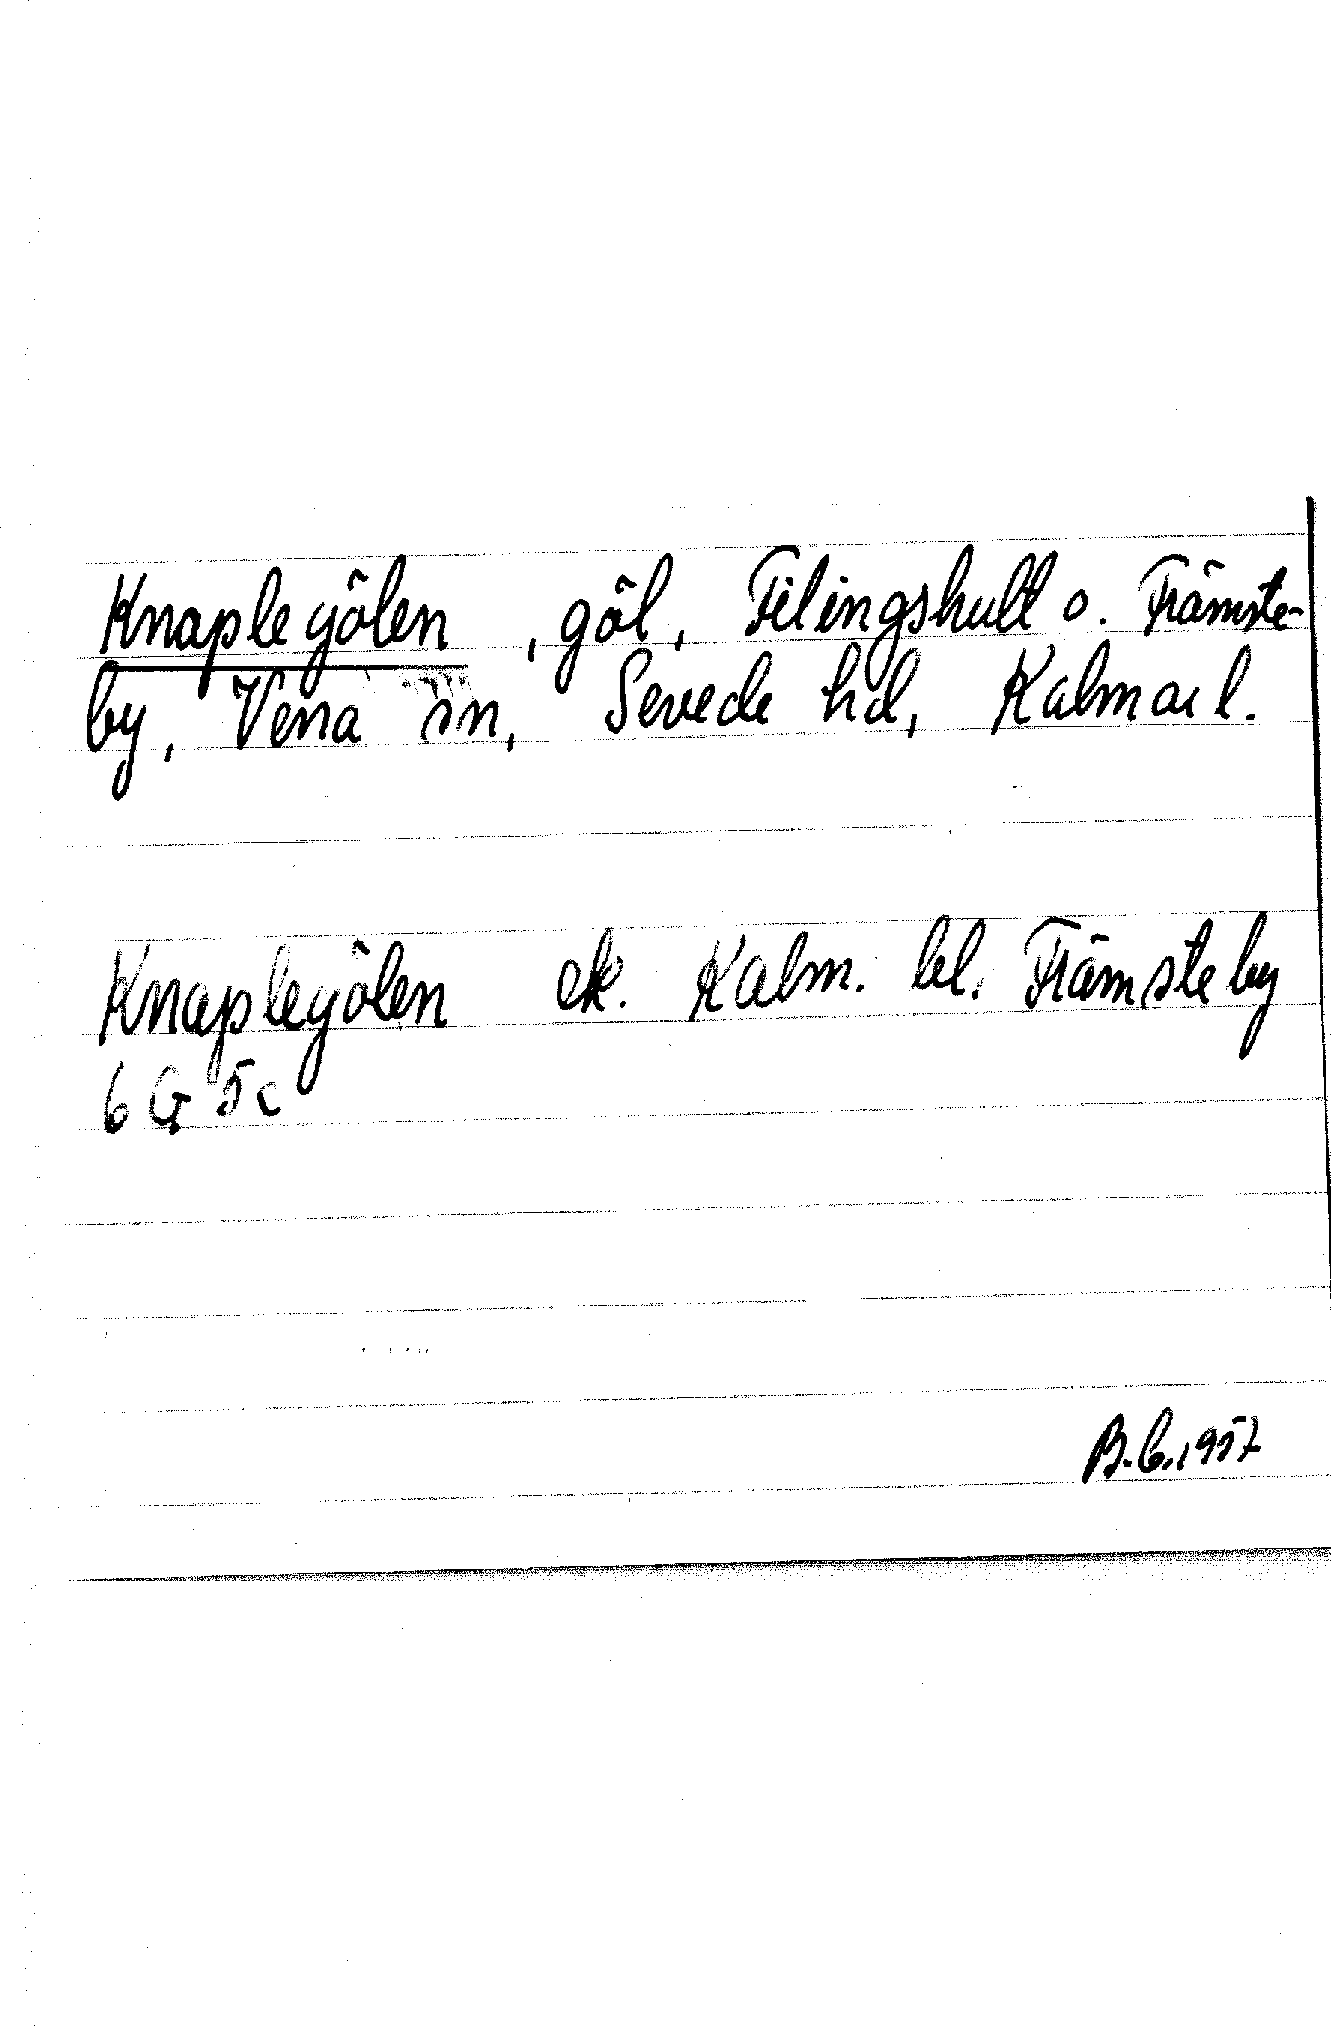 Knaplegölen, göl, Filingshult o. Främste-
by, Vena sn, Sevede hd, Kalmar l.
Knaplegölen ek. Kalm. bl. Främsteby
6G 5c
B.C. 1957